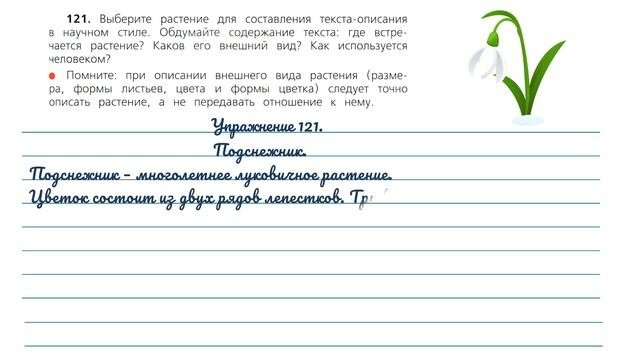 121. Выберите растение для составления текста-описания
в научном стиле. Обдумайте содержание текста: где встре-
чается растение? Каков его внешний вид? Как используется
человеком?
Помните: при описании внешнего вида растения (разме-
ра, формы листьев, цвета и формы цветка) следует точно
описать растение, а не передавать отношение к нему.
Упражнение 121.
Подснежник.
Подснежник – многолетнее луковичное растение.
Цветок состоит из двух рядов лепестков. Тр